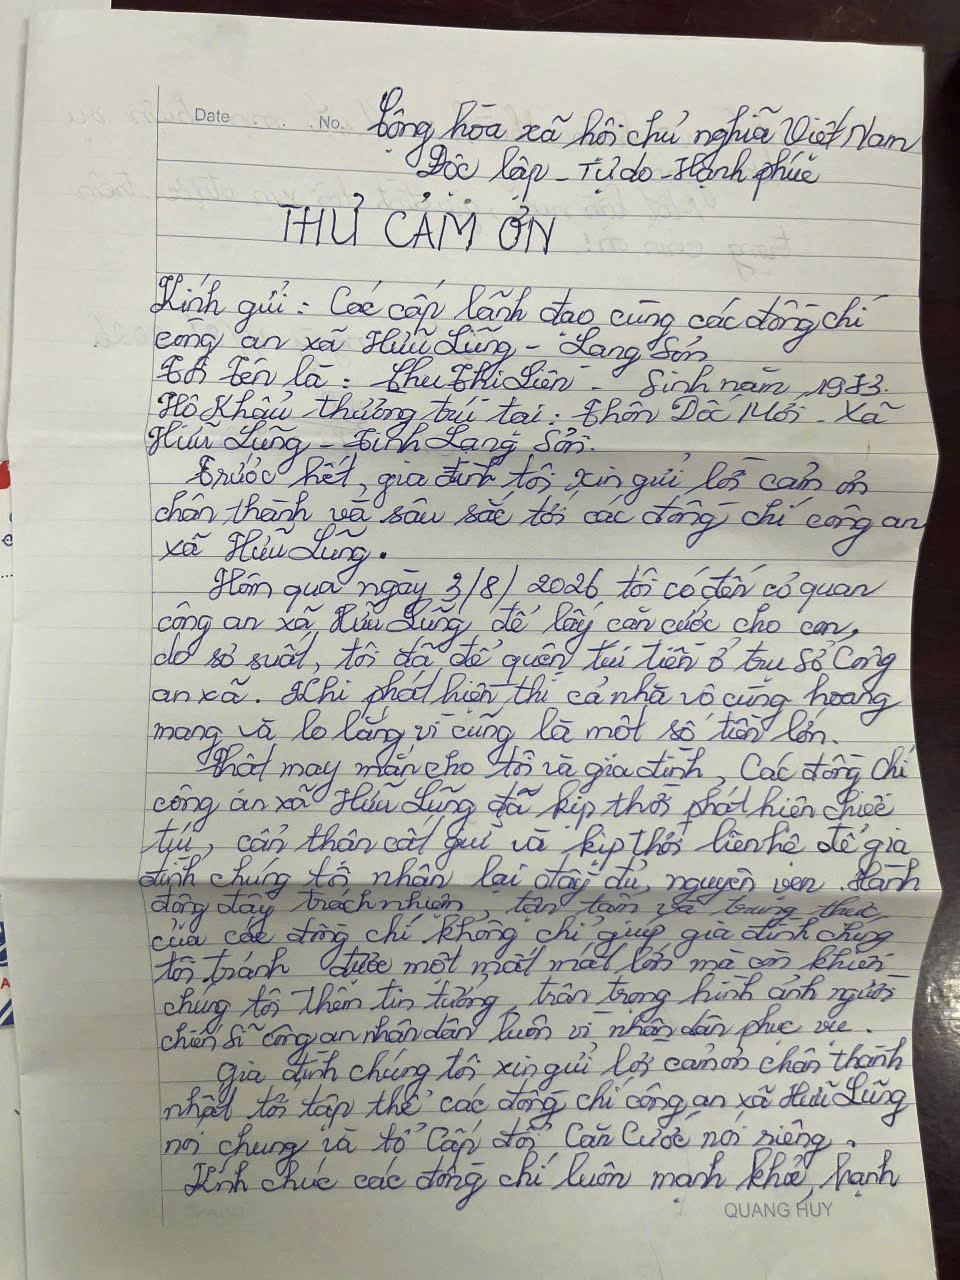 Date . . . No. Cộng hòa xã hội chủ nghĩa Việt Nam
Độc lập - Tự do - Hạnh phúc
THƯ CẢM ƠN
Kính gửi: Các cấp lãnh đạo cùng các đồng chí
công an xã Hữu Lũng - Lạng Sơn
Tôi tên là: Chu Thị Liên - Sinh năm 1983.
Hộ khẩu thường trú tại: Thôn Dốc Mới - Xã
Hữu Lũng - Tỉnh Lạng Sơn.
Trước hết, gia đình tôi xin gửi lời cảm ơn
chân thành và sâu sắc tới các đồng chí công an
xã Hữu Lũng.
Hôm qua ngày 3/8/2026 tôi có đến cơ quan
công an xã Hữu Lũng để lấy căn cước cho con,
do sơ suất, tôi đã để quên túi tiền ở trụ sở Công
an xã. Khi phát hiện thì cả nhà vô cùng hoang
mang và lo lắng vì cũng là một số tiền lớn.
Thật may mắn cho tôi và gia đình, Các đồng chí
công an xã Hữu Lũng đã kịp thời phát hiện chiếc
túi, cẩn thận cất giữ và kịp thời liên hệ để gia
đình chúng tôi nhận lại đầy đủ, nguyên vẹn. Hành
động đầy trách nhiệm, tận tâm và trung thực
của các đồng chí không chỉ giúp gia đình chúng
tôi tránh được một mất mát lớn mà còn khiến
chúng tôi thêm tin tưởng, trân trọng hình ảnh người
chiến sĩ công an nhân dân luôn vì nhân dân phục vụ.
Gia đình chúng tôi xin gửi lời cảm ơn chân thành
nhất tới tập thể các đồng chí công an xã Hữu Lũng
nói chung và tổ Cấp đổi Căn Cước nói riêng.
Kính chúc các đồng chí luôn mạnh khỏe, hạnh
QUANG HUY